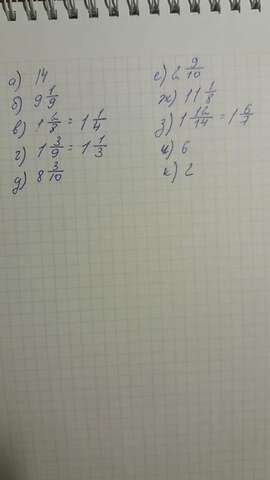 а) 14
б) 9 1/9
в) 1 2/8 = 1 1/4
г) 1 3/9 = 1 1/3
д) 8 3/10
е) 2 9/10
ж) 11 1/8
з) 1 12/14 = 1 6/7
и) 6
к) 2